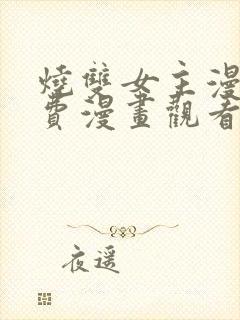 燒雙女主漫
費漫畫觀看
夜遥